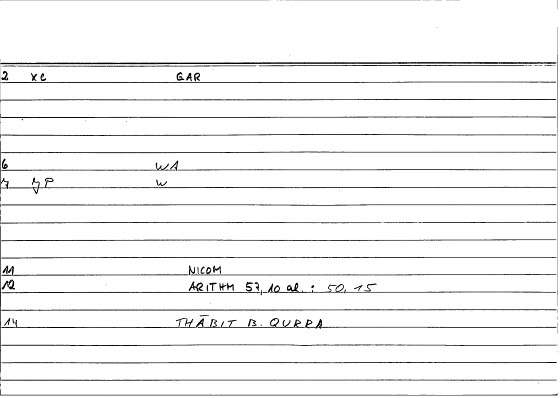 2 XC GAR
6 WA
7 JP W
11 NICOM
12 ARITHM 57, 10 al. : 50, 15
14 THĀBIT B. QURRA